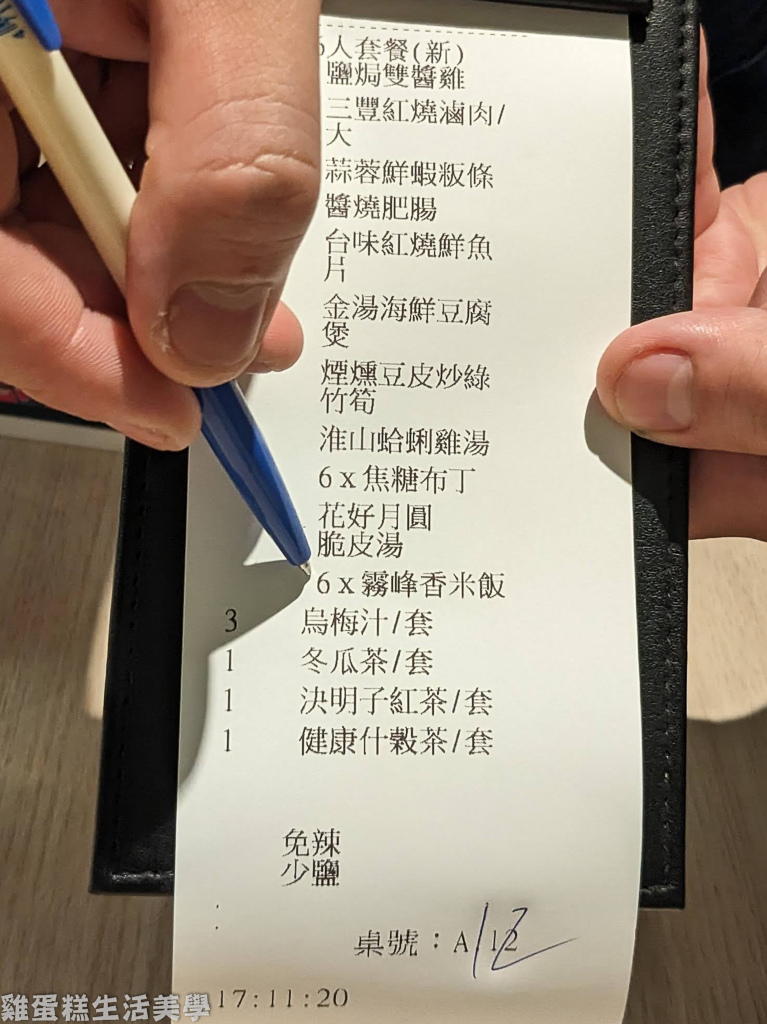 6人套餐(新)
鹽焗雙醬雞
三豐紅燒滷肉/
大
蒜蓉鮮蝦粄條
醬燒肥腸
台味紅燒鮮魚
片
金湯海鮮豆腐
煲
煙燻豆皮炒綠
竹筍
淮山蛤蜊雞湯
6x焦糖布丁
花好月圓
脆皮湯
6x霧峰香米飯
3 烏梅汁/套
1 冬瓜茶/套
1 決明子紅茶/套
1 健康什穀茶/套
免辣
少鹽
桌號：A 12
17:11:20
雞蛋糕生活美學